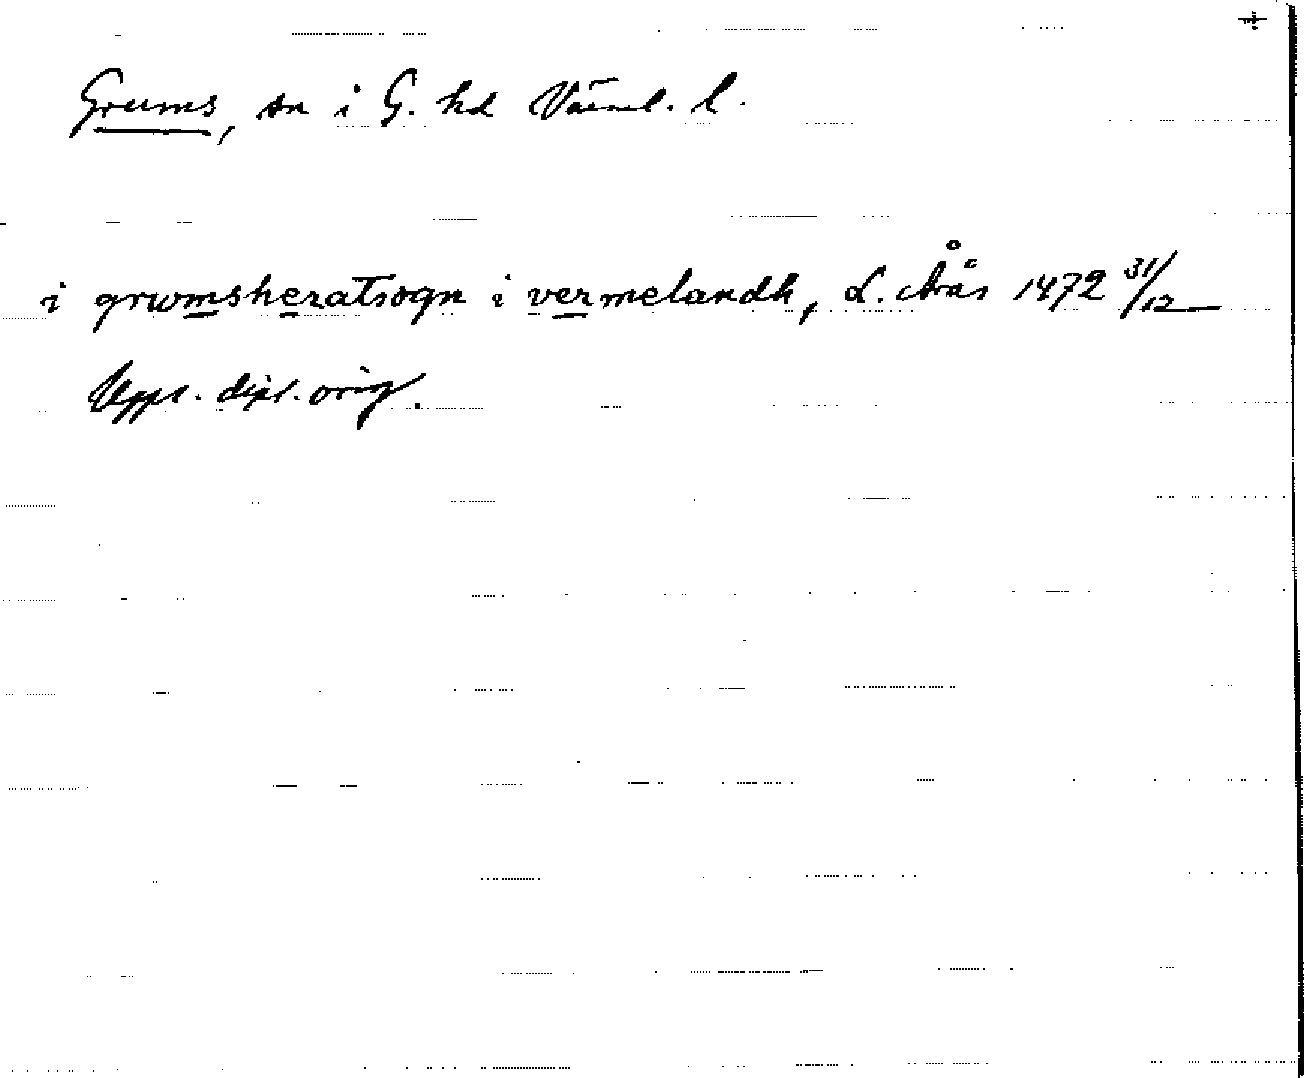 Grums, sn i G. hd Värml. l.
i grwmsheratsogn i vermelandh, L. Årås 1472 31/12
Uppl. dipl. orig.